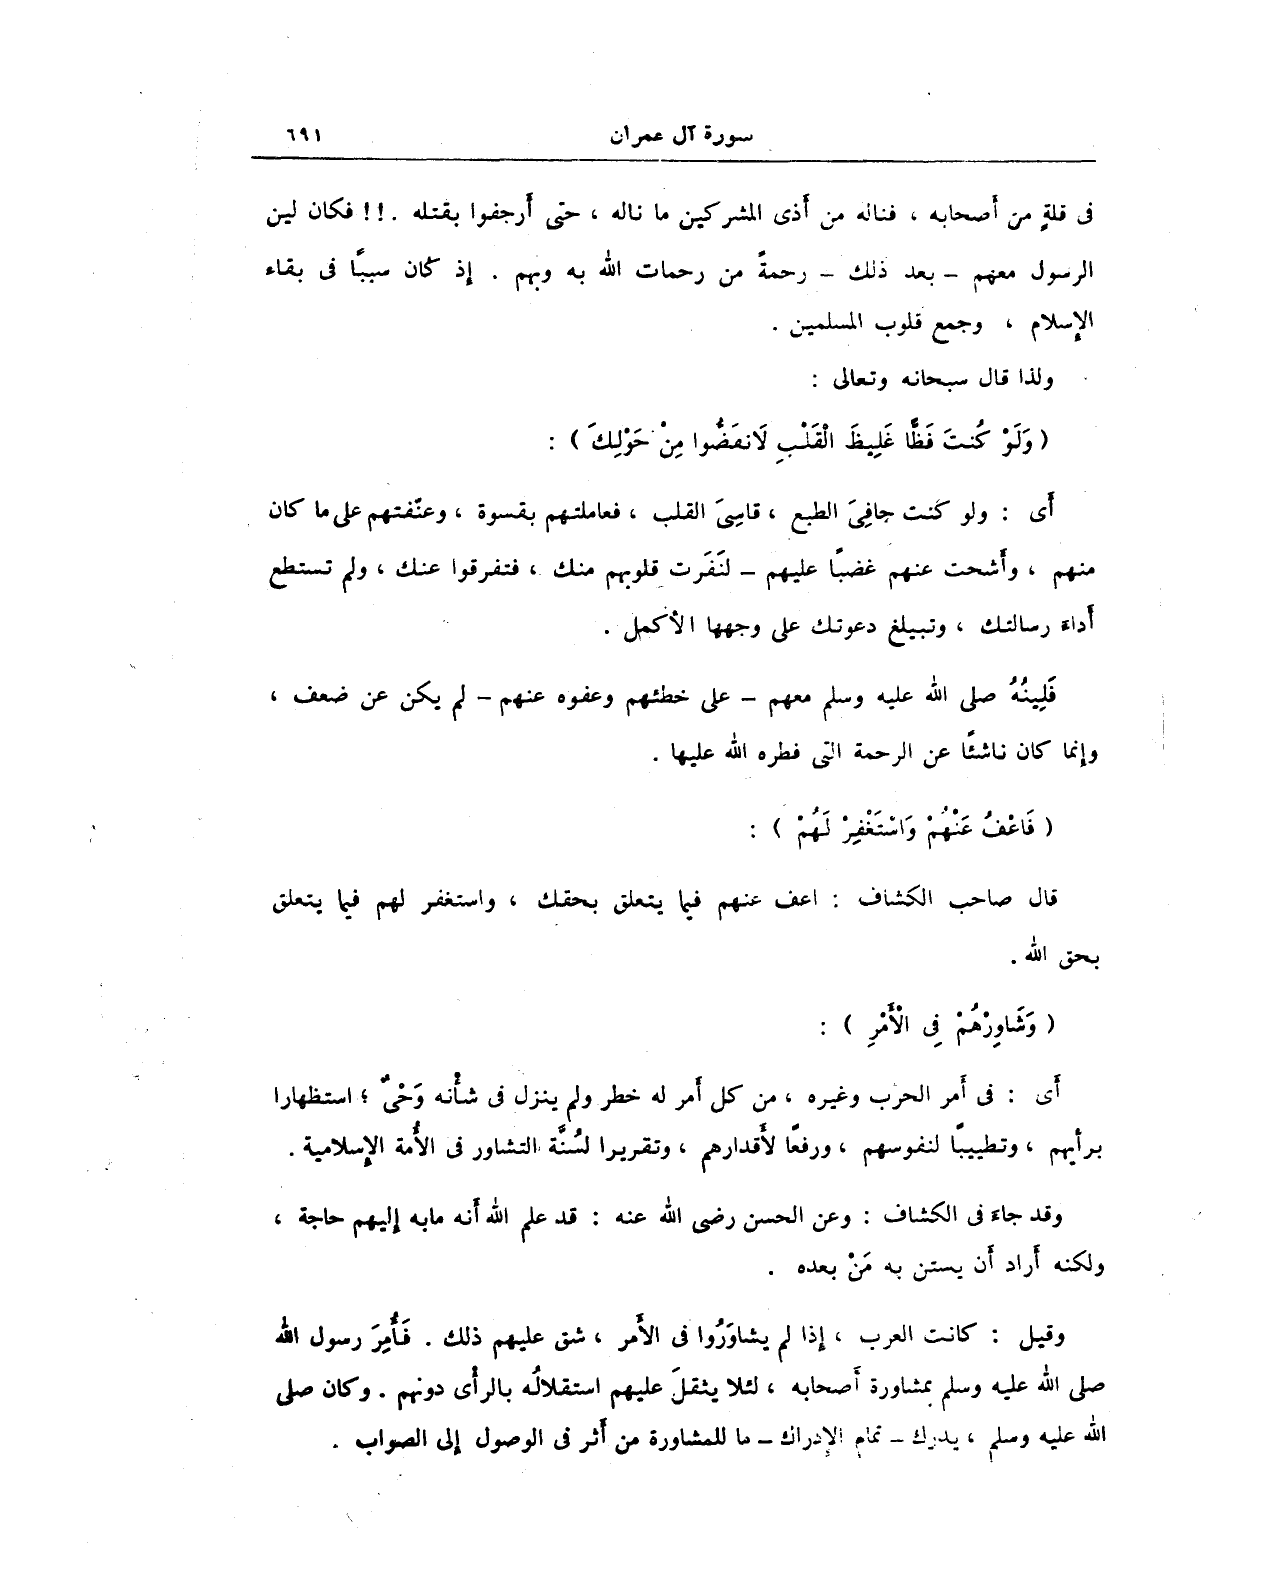 سورة آل عمران ٦٩١
فى قلةٍ من أَصحابه ، فناله من أَذى المشركين ما ناله ، حتى أَرجفوا بقتله .!! فكان لين
الرسول معهم – بعد ذلك – رحمةً من رحمات الله به وبهم . إذ كان سببًا فى بقاء
الإِسلام ، وجمع قلوب المسلمين .
ولذا قال سبحانه وتعالى :
( وَلَوْ كُنتَ فَظًّا غَلِيظَ الْقَلْبِ لَانفَضُّوا مِنْ حَوْلِكَ ) :
أَى : ولو كنت جافِىَ الطبع ، قاسِىَ القلب ، فعاملتهم بقسوة ، وعنَّفتهم على ما كان
منهم ، وأَشحت عنهم غضبًا عليهم – لنَفَرت قلوبهم منك ، فتفرقوا عنك ، ولم تستطع
أَداءَ رسالتك ، وتبيلغ دعوتك على وجهها الأَكمل .
فَلِينُهُ صلى الله عليه وسلم معهم – على خطئهم وعفوه عنهم – لم يكن عن ضعف ،
وإنما كان ناشئًا عن الرحمة التى فطره الله عليها .
( فَاعْفُ عَنْهُمْ وَاسْتَغْفِرْ لَهُمْ ) :
قال صاحب الكشاف : اعف عنهم فيما يتعلق بحقك ، واستغفر لهم فيما يتعلق
بحق الله .
( وَشَاوِرْهُمْ فِى الْأَمْرِ ) :
أَى : فى أَمر الحرب وغيره ، من كل أَمر له خطر ولم ينزل فى شأْنه وَحْىٌ ؛ استظهارا
برأيهم ، وتطييبًا لنفوسهم ، ورفعًا لأَقدارهم ، وتقريرا لسُنَّة التشاور فى الأُمة الإِسلامية .
وقد جاءَ فى الكشاف : وعن الحسن رضى الله عنه : قد علم الله أَنه مابه إِليهم حاجة ،
ولكنه أَراد أَن يستن به مَنْ بعده .
وقيل : كانت العرب ، إِذا لم يشاوَرُوا فى الأَمر ، شق عليهم ذلك . فَأُمِرَ رسول الله
صلى الله عليه وسلم بمشاورة أَصحابه ، لئلا يثقلَ عليهم استقلالُه بالرأْى دونهم . وكان صلى
الله عليه وسلم ، يدرك – تمام الإِدراك – ما للمشاورة من أَثر فى الوصول إِلى الصواب .